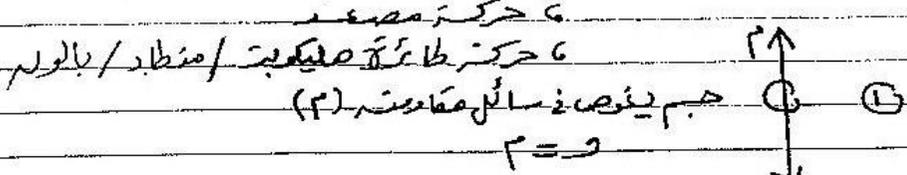 ، حركة مصعد
، حركة طائرة هليكوبتر / منطاد / بالون
① م جسم يغوص في سائل مقاومته (م)
و = م